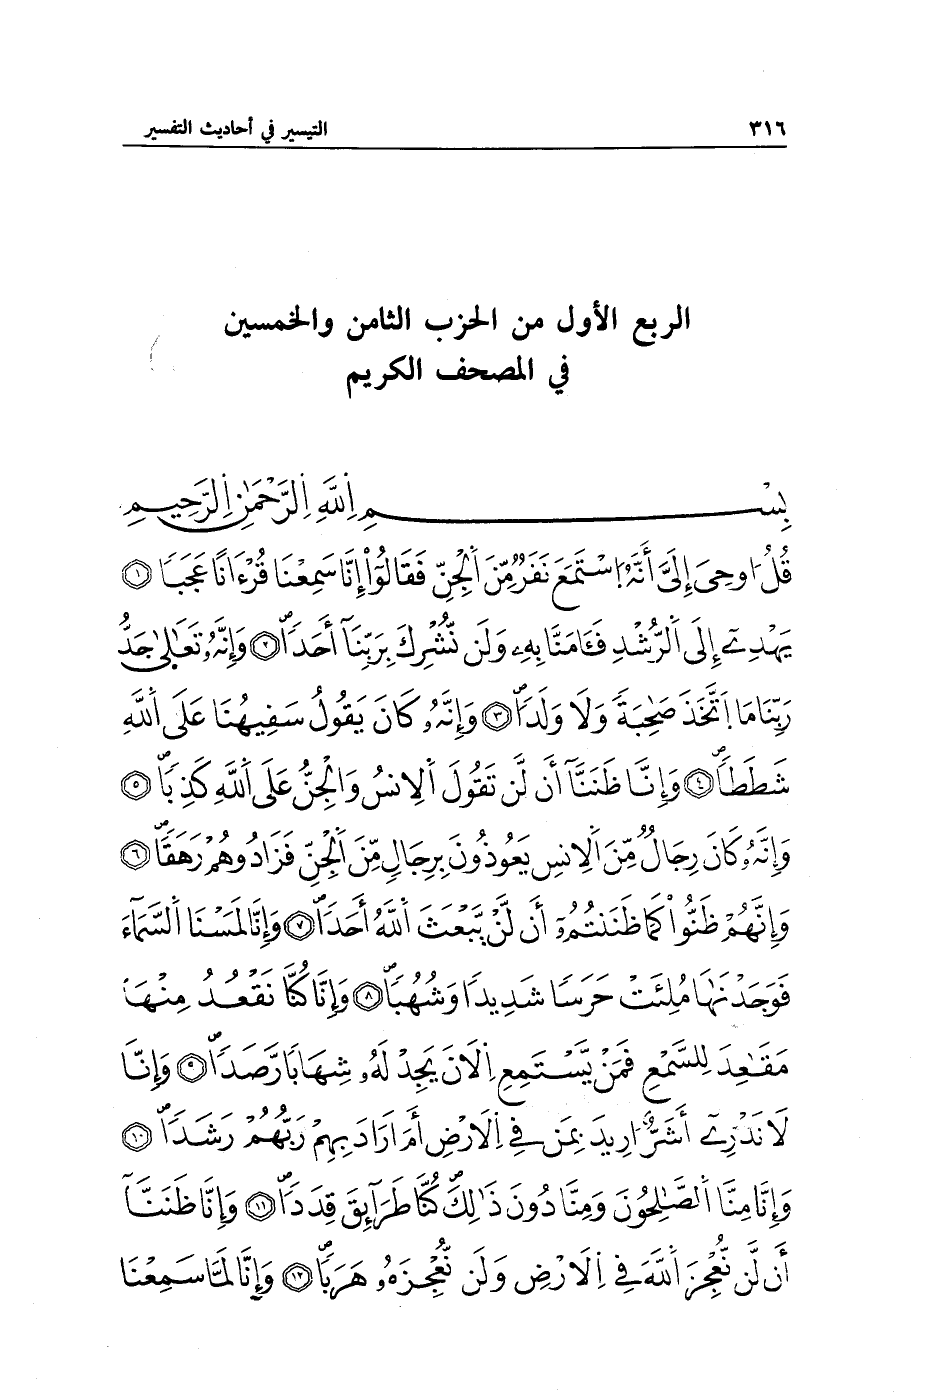 ٣١٦
التيسير في أحاديث التفسير
الربع الأول من الحزب الثامن والخمسين
في المصحف الكريم
بِسْمِ اِللَّهِ اِلرَّحْمَٰنِ اِلرَّحِيمِ
قُلُ اوحِيَ إِلَيَّ أَنَّهُ اُسْتَمَعَ نَفَرٌ مِّنَ اَلْجِنِّ فَقَالُوٓاْ إِنَّا سَمِعْنَا قُرْءَاناً عَجَباً ١
يَهْدِےٓ إِلَى اَلرُّشْدِ فَـَٔامَنَّا بِهِۦ وَلَن نُّشْرِكَ بِرَبِّنَآ أَحَداً ٢ وَإِنَّهُۥ تَعَٰلَىٰ جَدُّ
رَبِّنَا مَا اَتَّخَذَ صَٰحِبَةً وَلَا وَلَداً ٣ وَإِنَّهُۥ كَانَ يَقُولُ سَفِيهُنَا عَلَى اَللَّهِ
شَطَطاً ٤ وَإِنَّا ظَنَنَّآ أَن لَّن تَقُولَ اَلِانسُ وَالْجِنُّ عَلَى اَللَّهِ كَذِباً ٥
وَإِنَّهُۥ كَانَ رِجَالٌ مِّنَ اَلِانسِ يَعُوذُونَ بِرِجَالٍ مِّنَ اَلْجِنِّ فَزَادُوهُمْ رَهَقاً ٦
وَإِنَّهُمْ ظَنُّواْ كَمَا ظَنَنتُمُۥٓ أَن لَّنْ يَّبْعَثَ اَللَّهُ أَحَداً ٧ وَإِنَّا لَمَسْنَا اَلسَّمَآءَ
فَوَجَدْنَٰهَا مُلِئَتْ حَرَساً شَدِيداً وَشُهُباً ٨ وَإِنَّا كُنَّا نَقْعُدُ مِنْهَا
مَقَٰعِدَ لِلسَّمْعِ فَمَنْ يَّسْتَمِعِ اِلَانَ يَجِدْ لَهُۥ شِهَاباً رَّصَداً ٩ وَإِنَّا
لَا نَدْرِےٓ أَشَرٌّ اُرِيدَ بِمَن فِے اِلَارْضِ أَمَ اَرَادَ بِهِمْ رَبُّهُمْ رَشَداً ١٠
وَإِنَّا مِنَّا اَلصَّٰلِحُونَ وَمِنَّا دُونَ ذَٰلِكَ كُنَّا طَرَآئِقَ قِدَداً ١١ وَإِنَّا ظَنَنَّآ
أَن لَّن نُّعْجِزَ اَللَّهَ فِے اِلَارْضِ وَلَن نُّعْجِزَهُۥ هَرَباً ١٢ وَإِنَّا لَمَّا سَمِعْنَا